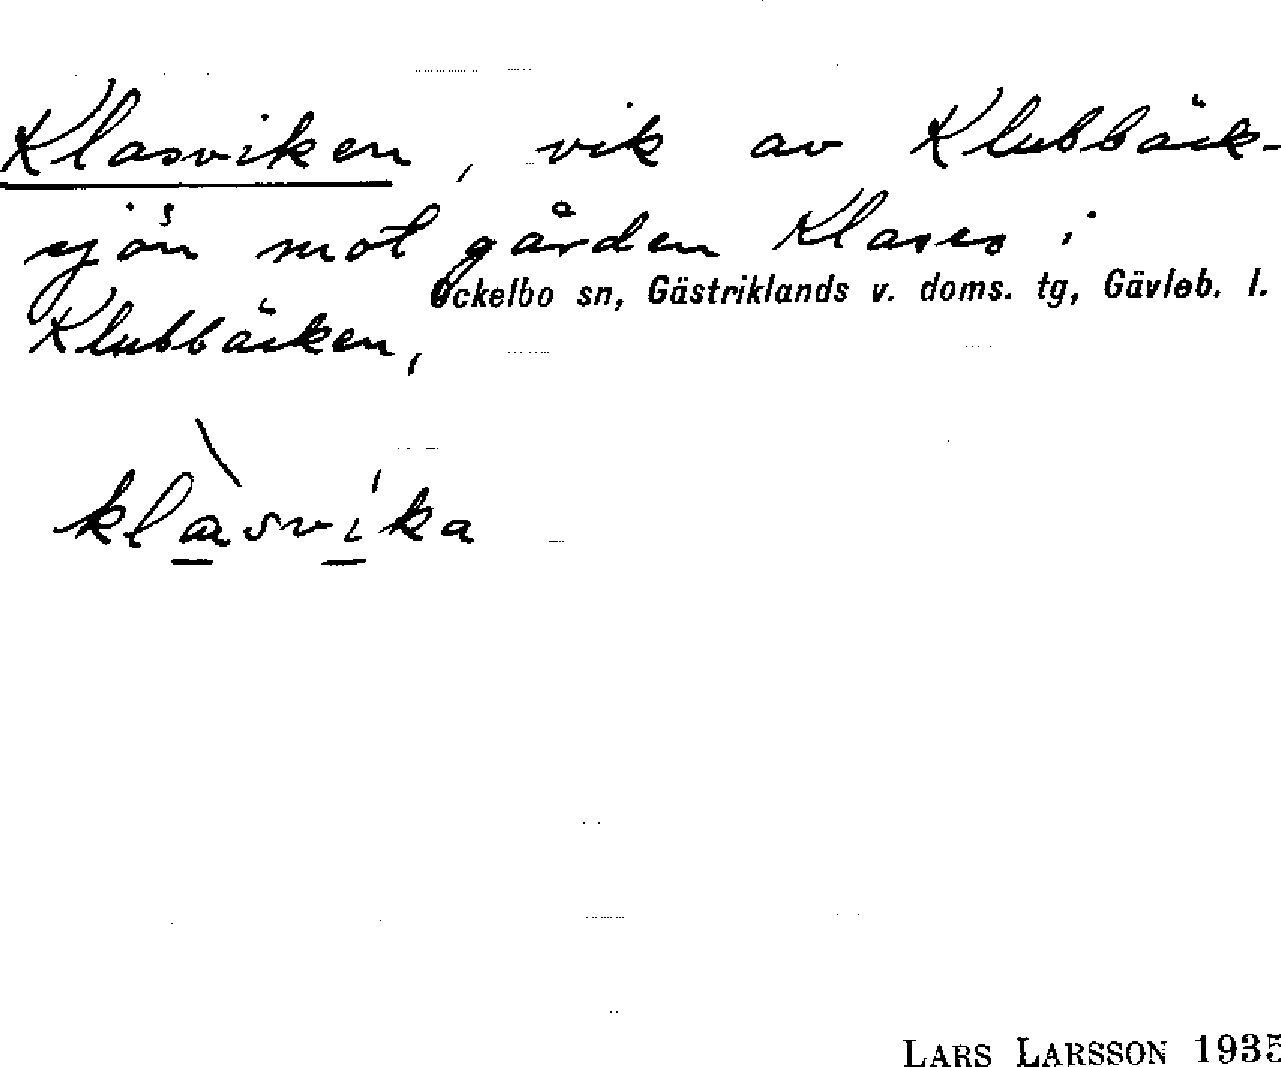 Klasviken, vik av Klubbäck-
sjön mot gården Klases i
Ockelbo sn, Gästriklands v. doms. tg, Gävleb. l.
Klubbäcken,
klàsvíka
LARS LARSSON 1935